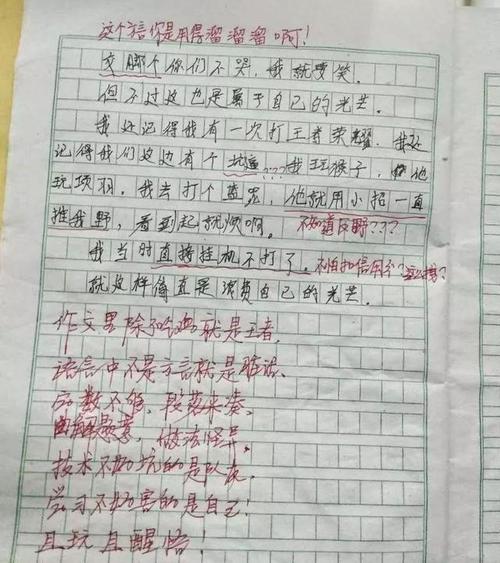 这个语言你是用得溜溜溜啊!
交哪个你们不哭，我就要笑。
但不过这也是属于自己的光芒。
我还记得我有一次打王者荣耀，我还
记得我们这边有个坑逼???我玩猴子，他
玩项羽。我去打个蓝龙，他就用小招一直
推我野，看到起就烦啊。不知道反野???
我当时直接挂机不打了。不怕扣信用分?怎么办?
就这样简直是浪费自己的光芒。
作文里除了吃鸡就是王者，
语言中不是方言就是脏话，
字数不够，段落来凑，
曲解题意，做法怪异。
技术不好坑的是队友，
学习不好害的是自己!
且玩且醒悟!